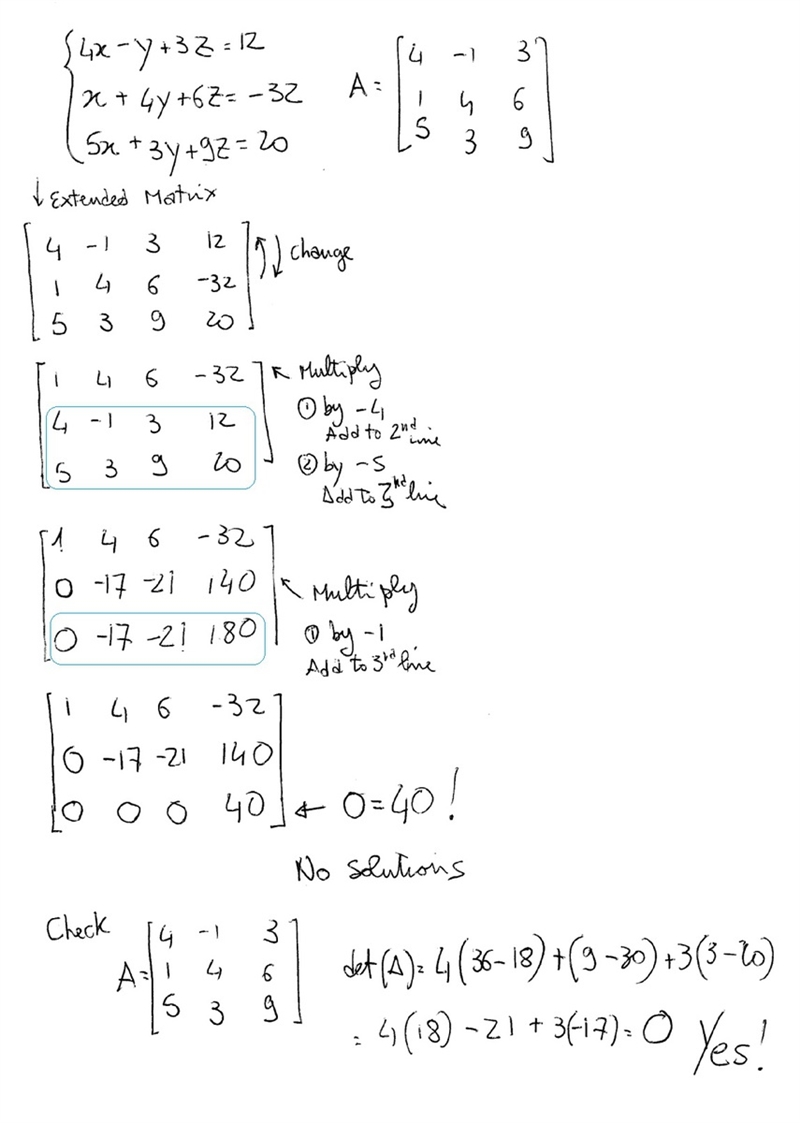 4x - y + 3z = 12
x + 4y + 6z = -32
5x + 3y + 9z = 20
A = [4 -1 3
1 4 6
5 3 9]
↓ Extended Matrix
[4 -1 3 12
1 4 6 -32
5 3 9 20]
Change
[1 4 6 -32
4 -1 3 12
5 3 9 20]
Multiply
① by -4
Add to 2nd line
② by -5
Add to 3rd line
[1 4 6 -32
0 -17 -21 140
0 -17 -21 180]
Multiply
① by -1
Add to 3rd line
[1 4 6 -32
0 -17 -21 140
0 0 0 40] ← 0=40!
No solutions
Check
A = [4 -1 3
1 4 6
5 3 9]
det(A) = 4(36-18)+(9-30)+3(3-20)
= 4(18) -21 + 3(-17) = 0 Yes!